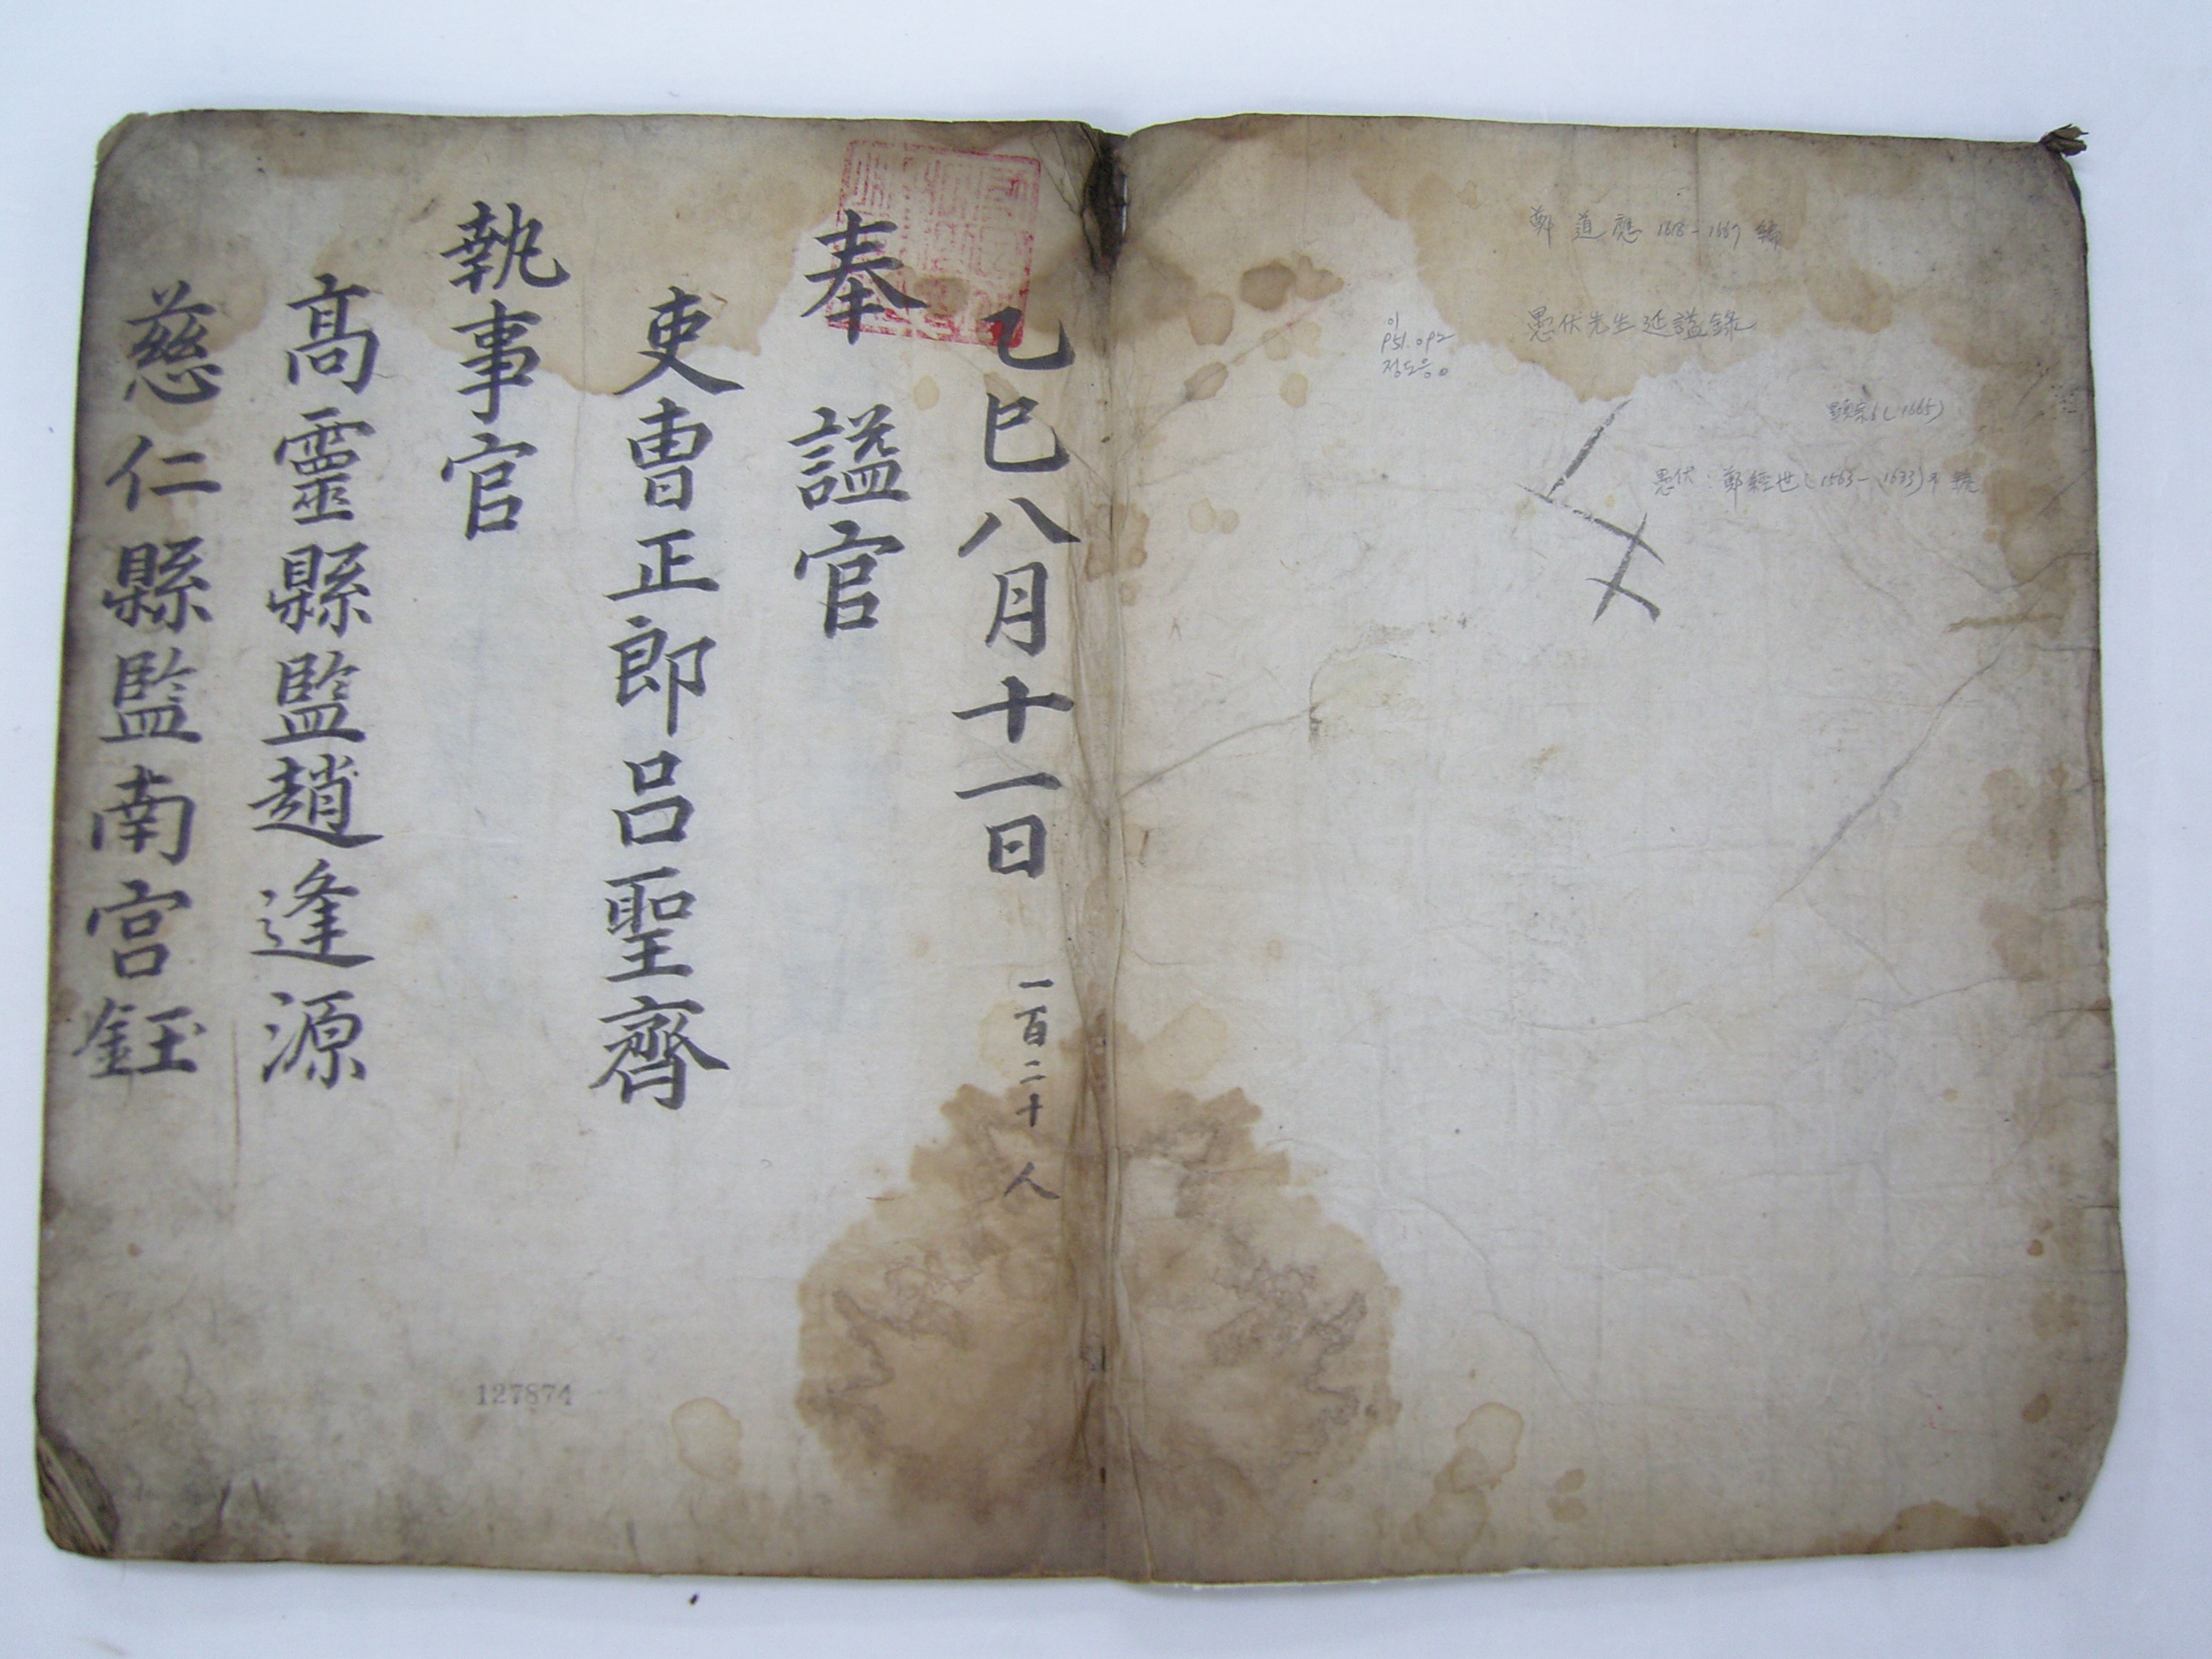 鄭道應 1618-1667 編
愚伏先生延諡錄
이
951.092
정도응
顯宗6(1665)
愚伏:鄭經世(1563-1633)의 號
乙巳八月十一日 一百二十 人
奉 諡官
吏曹正郎呂聖齊
執事官
高靈縣監趙逢源
慈仁縣監南宮鈺
127874